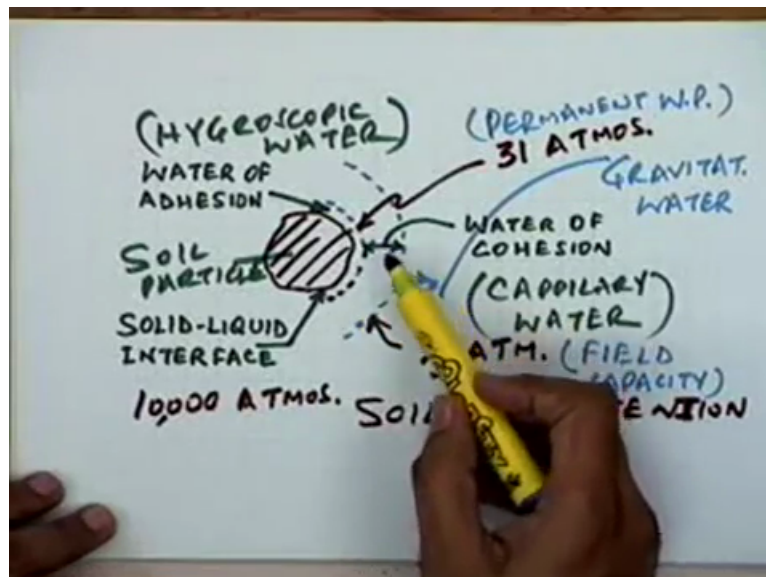 (HYGROSCOPIC
WATER)
WATER OF
ADHESION
SOIL
PARTICLE
SOLID-LIQUID
INTERFACE
10,000 ATMOS.
(PERMANENT W.P.)
31 ATMOS.
GRAVITAT.
WATER
WATER OF
COHESION
(CAPPILARY
WATER)
ATM. (FIELD
CAPACITY)